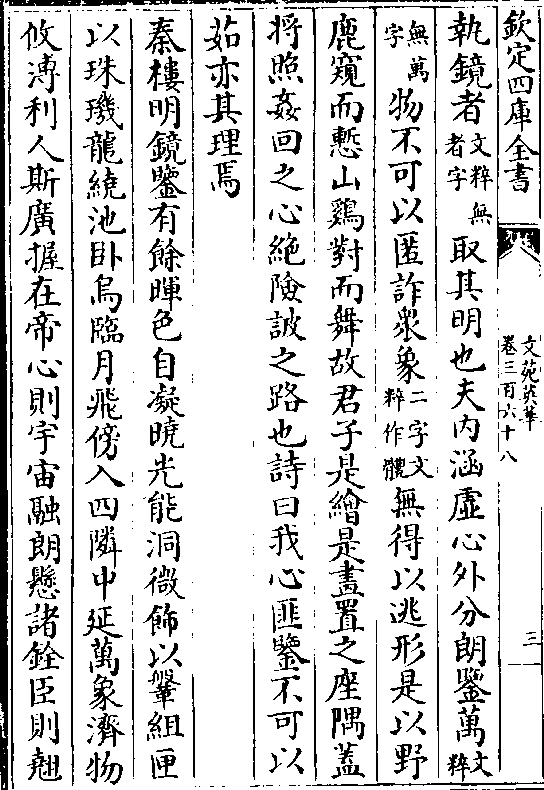 欽定四庫全書
文苑英華
卷三百六十八
三
執鏡者文粹無者字取其明也夫内涵虛心外分朗鑒萬文粹
無萬字物不可以匿詐衆象二字文粹作體無得以逃形是以野
鹿窺而慙山鷄對而舞故君子是繪是畫置之座隅蓋
將照姦回之心絶險詖之路也詩曰我心匪鑒不可以
茹亦其理焉
秦樓明鏡鑒有餘暉色自凝曉光能洞微飾以鞶組匣
以珠璣龍繞池卧烏臨月飛傍入四隣中延萬象濟物
攸溥利人斯廣握在帝心則宇宙融朗懸諸銓臣則翹